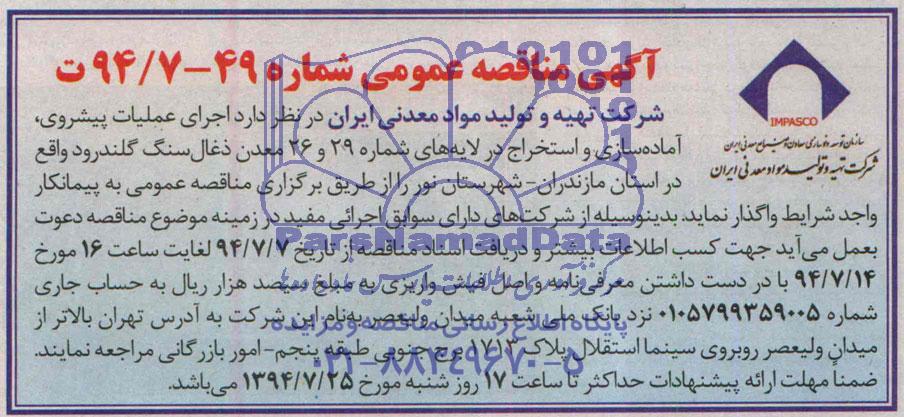 آگهی مناقصه عمومی شماره ۴۹-۹۴/۷ ت
IMPASCO
سازمان توسعه و نوسازی معادن و صنایع معدنی ایران
شرکت تهیه و تولید مواد معدنی ایران
شرکت تهیه و تولید مواد معدنی ایران در نظر دارد اجرای عملیات پیشروی،
آماده‌سازی و استخراج در لایه‌های شماره ۲۹ و ۲۶ معدن ذغال‌سنگ گلندرود واقع
در استان مازندران- شهرستان نور را از طریق برگزاری مناقصه عمومی به پیمانکار
واجد شرایط واگذار نماید. بدینوسیله از شرکت‌های دارای سوابق اجرائی مفید در زمینه موضوع مناقصه دعوت
بعمل می‌آید جهت کسب اطلاعات بیشتر و دریافت اسناد مناقصه از تاریخ ۹۴/۷/۷ لغایت ساعت ۱۶ مورخ
۹۴/۷/۱۴ با در دست داشتن معرفی‌نامه و اصل فیش واریزی به مبلغ سیصد هزار ریال به حساب جاری
شماره ۰۱۰۵۷۹۹۳۵۹۰۰۵ نزد بانک ملی شعبه میدان ولیعصر به‌نام این شرکت به آدرس تهران بالاتر از
میدان ولیعصر روبروی سینما استقلال پلاک ۱۷۱۳ برج جنوبی طبقه پنجم-امور بازرگانی مراجعه نمایند.
ضمناً مهلت ارائه پیشنهادات حداکثر تا ساعت ۱۷ روز شنبه مورخ ۱۳۹۴/۷/۲۵ می‌باشد.
ParsNamadData
پایگاه اطلاع رسانی مناقصه و مزایده
۰۲۱-۸۸۳۴۹۶۷۰-۵